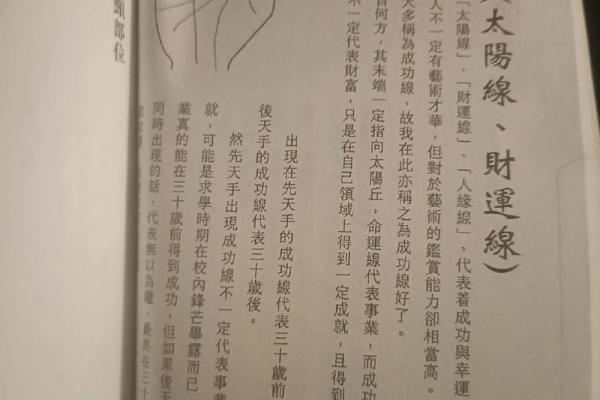 太陽線、財運線）
「太陽線」、「財運線」、「人緣線」，代表着成功與幸運
人不一定有藝術才華，但對於藝術的鑑賞能力卻相當高。
大多稱為成功線，故我在此亦稱之為成功線好了。
何方，其末端一定指向太陽丘，命運線代表事業，而成功
不一定代表財富，只是在自己領域上得到一定成就，且得到
出現在先天手的成功線代表三十歲前
後天手的成功線代表三十歲後。
然先天手出現成功線不一定代表事業
就，可能是求學時期在校內鋒芒畢露而已
業真的能在三十歲前得到成功，但如果後天
同時出現的話，代表無以為繼，最終在三十
頸部位